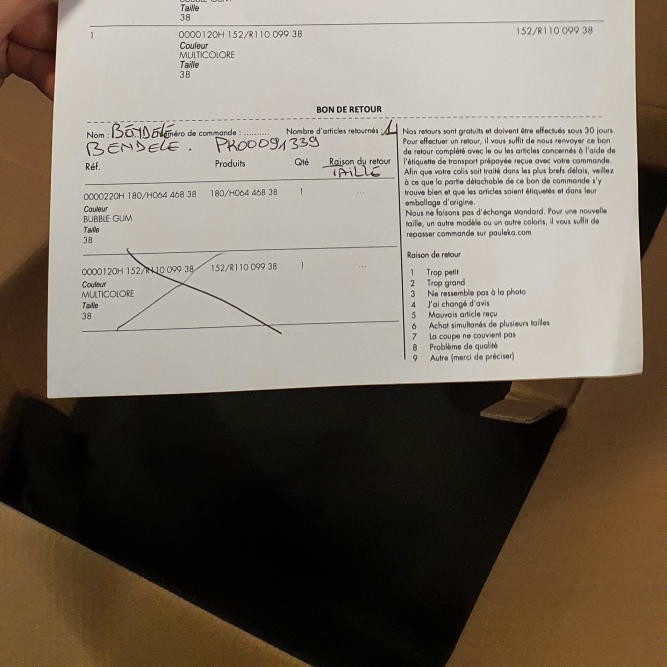 Taille
38
1 0000120H 152/R110 099 38 152/R110 099 38
Couleur
MULTICOLORE
Taille
38
BON DE RETOUR
Nom : BENDELE numéro de commande : .......... Nombre d'articles retournés : 1
BENDELE. PK00091339
Réf. Produits Qté Raison du retour
TAILLE
0000220H 180/H064 468 38 180/H064 468 38 1 ...
Couleur
BUBBLE GUM
Taille
38
0000120H 152/R110 099 38 152/R110 099 38 1 ...
Couleur
MULTICOLORE
Taille
38
Nos retours sont gratuits et doivent être effectués sous 30 jours.
Pour effectuer un retour, il vous suffit de nous renvoyer ce bon
de retour complété avec le ou les articles concernés à l'aide de
l'étiquette de transport prépayée reçue avec votre commande.
Afin que votre colis soit traité dans les plus brefs délais, veillez
à ce que la partie détachable de ce bon de commande s'y
trouve bien et que les articles soient étiquetés et dans leur
emballage d'origine.
Nous ne faisons pas d'échange standard. Pour une nouvelle
taille, un autre modèle ou un autre coloris, il vous suffit de
repasser commande sur pauleka.com
Raison de retour
1 Trop petit
2 Trop grand
3 Ne ressemble pas à la photo
4 J'ai changé d'avis
5 Mauvais article reçu
6 Achat simultanés de plusieurs tailles
7 La coupe ne convient pas
8 Problème de qualité
9 Autre (merci de préciser)